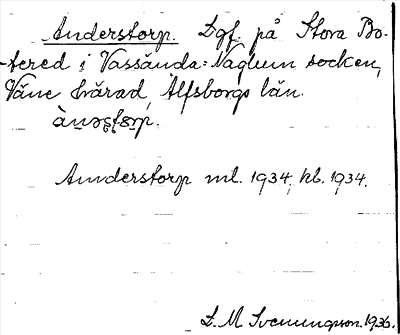 Anderstorp. Lgf. på Stora Bo-
-tered i Vassända-Naglum socken,
Väne härad, Älfsborgs län.
Anderstorp ml. 1934, kb. 1934.
L. M. Svenungsson. 1936.